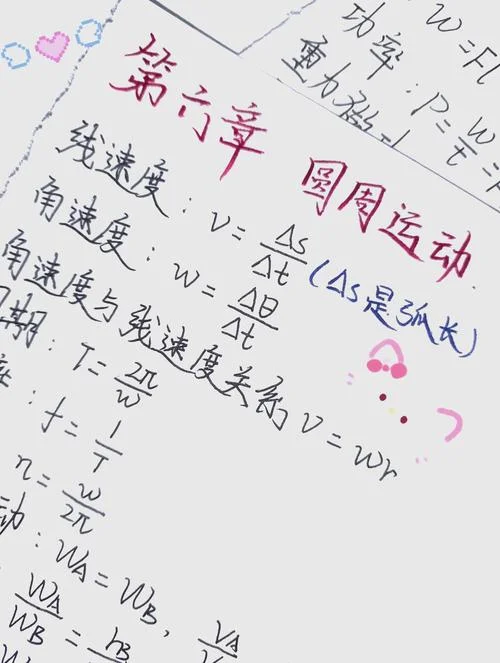 W=Fl
功率:P=W/t=
重力
第六章 圆周运动
线速度:v=Δs/Δt(Δs是弧长)
角速度:w=Δθ/Δt
角速度与线速度关系v=wr
期:T=2π/w
:f=1/T
n=w/2π
动:WA=WB,VA
WA/WB=rB